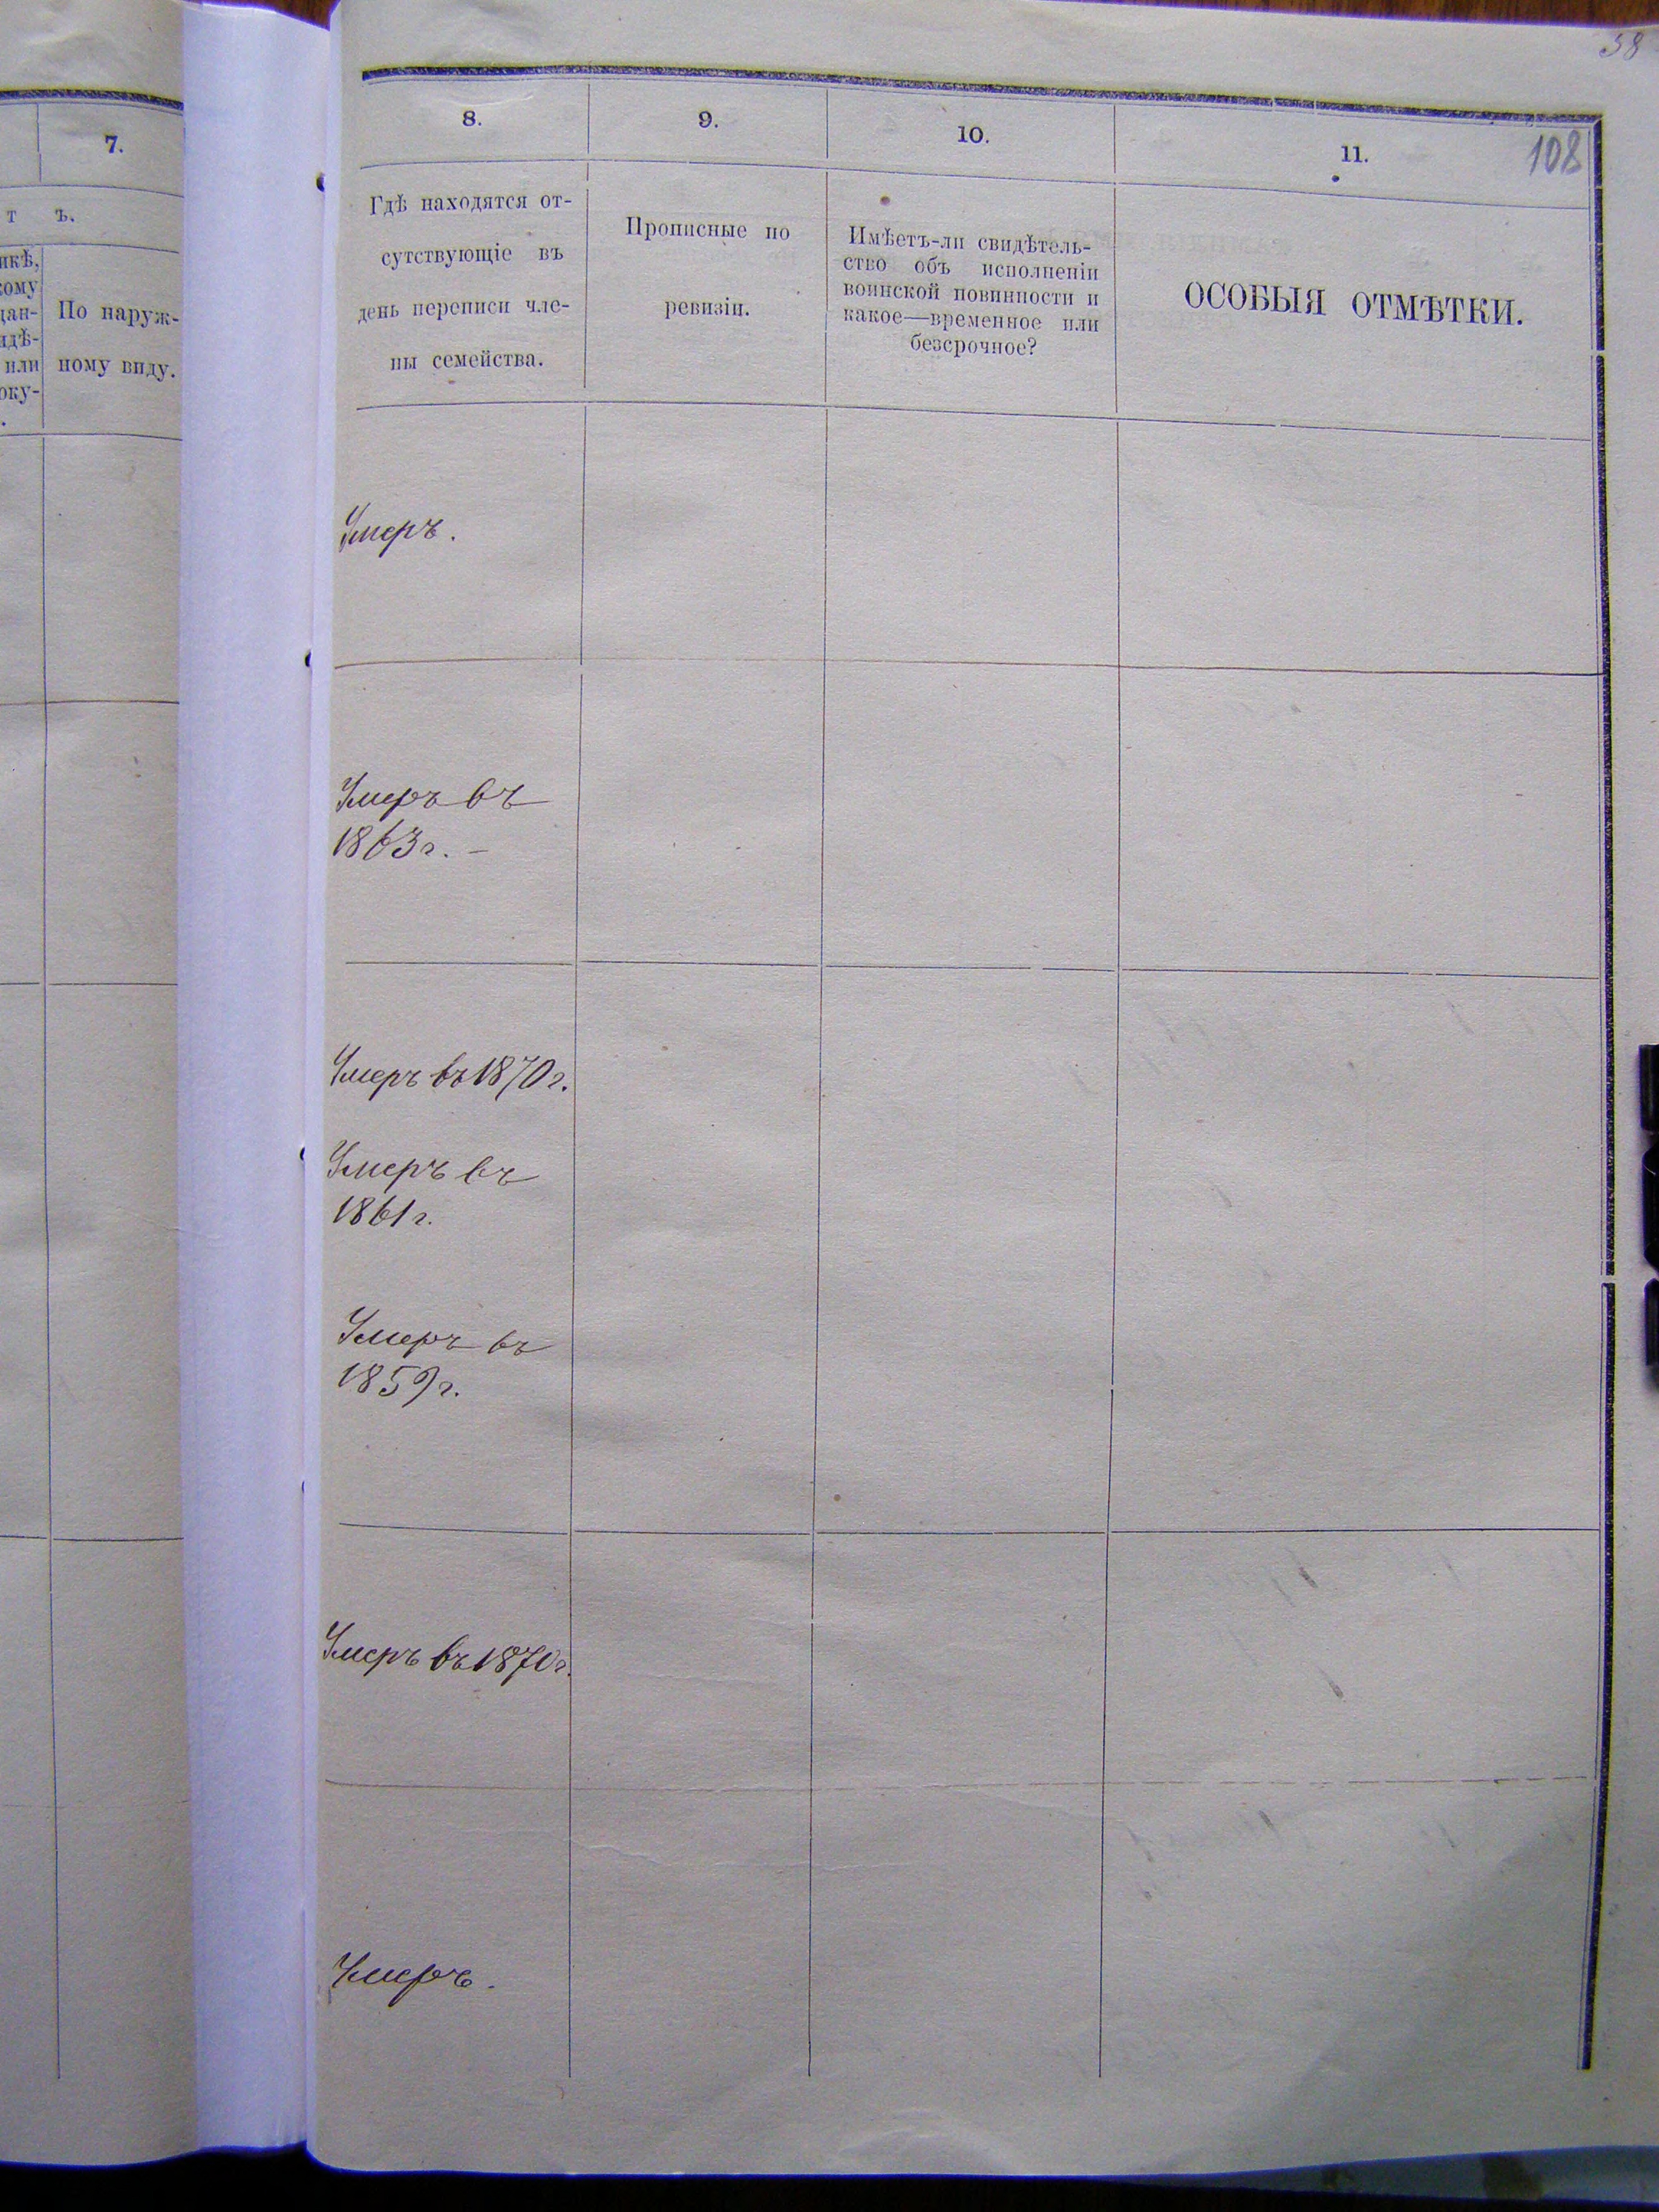 58
7.
т ъ.
По наруж-
ному виду.
8.
9.
10.
11.
108
Гдѣ находятся от-
сутствующіе въ
день переписи чле-
ны семейства.
Прописные по
ревизіи.
Имѣетъ-ли свидѣтель-
ство объ исполненіи
воинской повинности и
какое—временное или
безсрочное?
ОСОБЫЯ ОТМѢТКИ.
Умеръ.
Умеръ въ
1863 г. –
Умеръ въ 1870 г.
Умеръ въ
1861 г.
Умеръ въ
1859 г.
Умеръ въ 1870 г.
Умеръ.